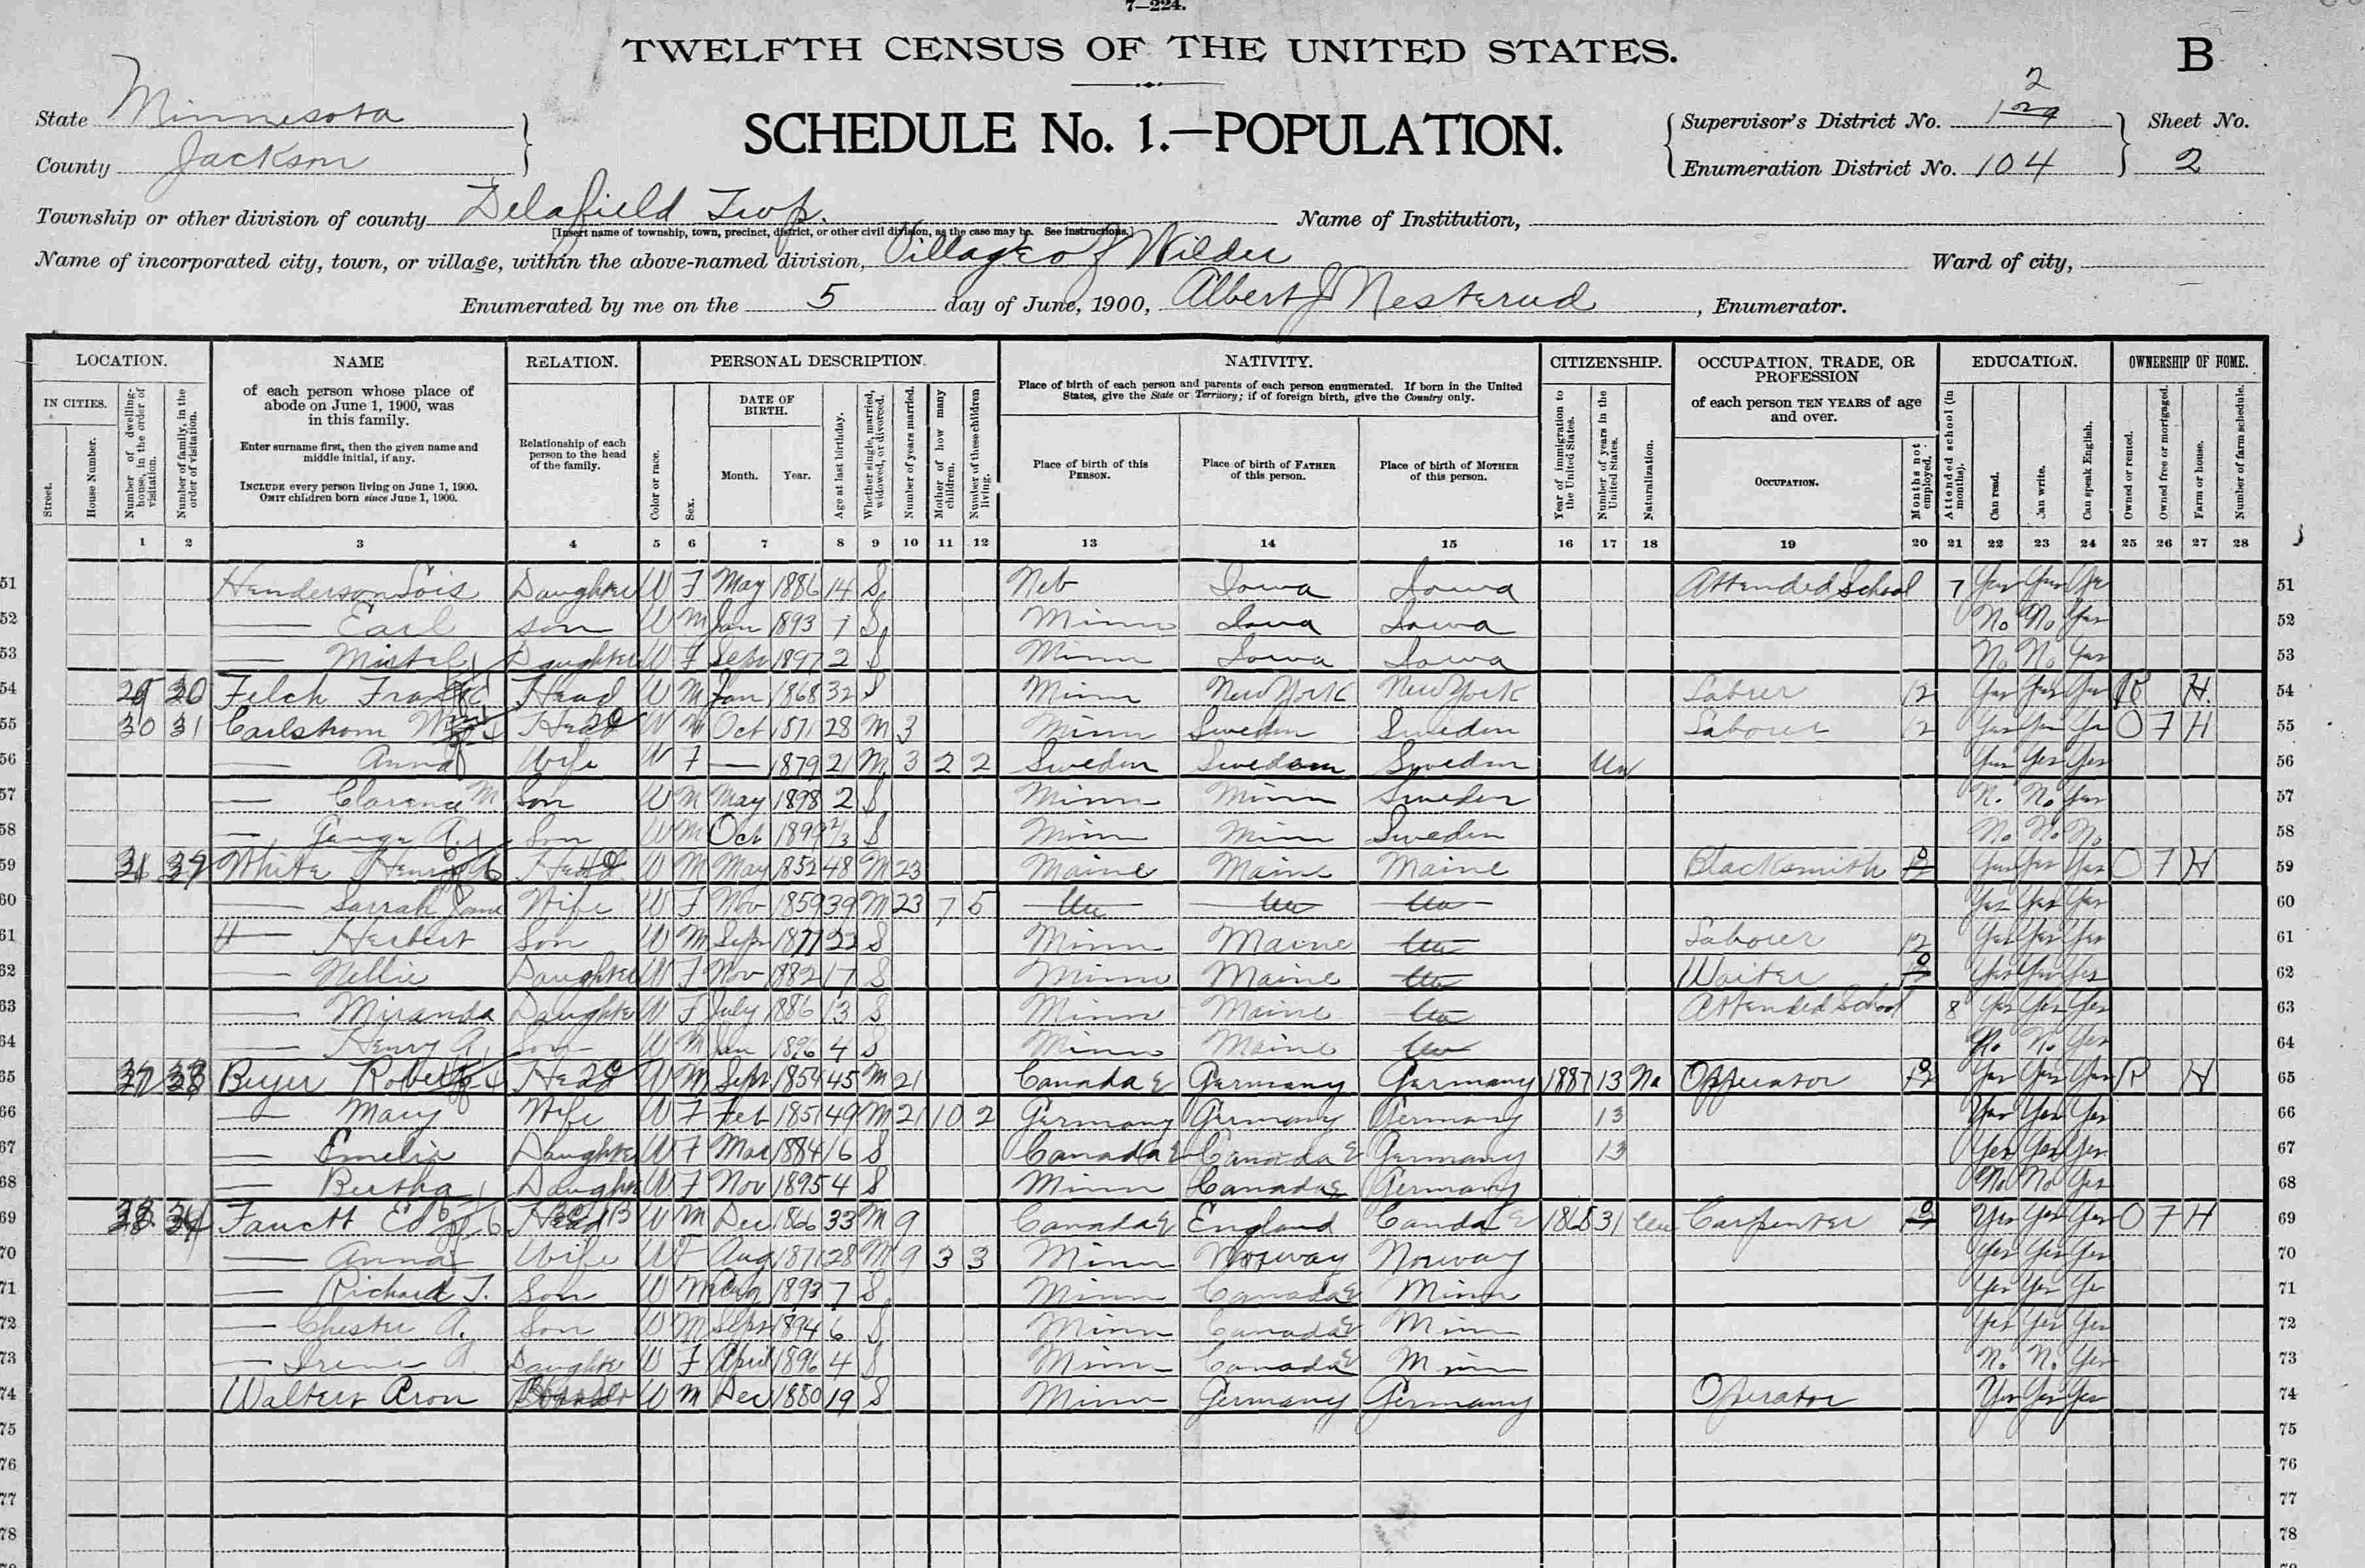 7—224.
TWELFTH CENSUS OF THE UNITED STATES.
B
State Minnesota
County Jackson
SCHEDULE No. 1.—POPULATION.
Supervisor's District No. 2
Enumeration District No. 104
Sheet No.
2
Township or other division of county Delafield Twp.
[Insert name of township, town, precinct, district, or other civil division, as the case may be. See instructions.]
Name of Institution,
Name of incorporated city, town, or village, within the above-named division, Village of Wilder
Ward of city,
Enumerated by me on the 5 day of June, 1900, Albert J Nesterud, Enumerator.
LOCATION.
IN CITIES.
Street.
House Number.
Number of dwelling-house, in the order of visitation.
Number of family, in the order of visitation.
NAME
of each person whose place of abode on June 1, 1900, was in this family.
Enter surname first, then the given name and middle initial, if any.
INCLUDE every person living on June 1, 1900.
OMIT children born since June 1, 1900.
RELATION.
Relationship of each person to the head of the family.
PERSONAL DESCRIPTION.
Color or race.
Sex.
DATE OF BIRTH.
Month. Year.
Age at last birthday.
Whether single, married, widowed, or divorced.
Number of years married.
Mother of how many children.
Number of these children living.
NATIVITY.
Place of birth of each person and parents of each person enumerated. If born in the United States, give the State or Territory; if of foreign birth, give the Country only.
Place of birth of this PERSON.
Place of birth of FATHER of this person.
Place of birth of MOTHER of this person.
CITIZENSHIP.
Year of immigration to the United States.
Number of years in the United States.
Naturalization.
OCCUPATION, TRADE, OR PROFESSION
of each person TEN YEARS of age and over.
OCCUPATION.
Months not employed.
EDUCATION.
Attended school (in months).
Can read.
Can write.
Can speak English.
OWNERSHIP OF HOME.
Owned or rented.
Owned free or mortgaged.
Farm or house.
Number of farm schedule.
1 2 3 4 5 6 7 8 9 10 11 12 13 14 15 16 17 18 19 20 21 22 23 24 25 26 27 28
51 Henderson Lois Daughter W F May 1886 14 S Neb Iowa Iowa Attended School 7 Yes Yes Ye 51
52 — Earl son W M Jan 1893 7 S Minn Iowa Iowa No No Yes 52
53 — Daughter W F Sept 1897 2 S Minn Iowa Iowa No No Yes 53
54 Felch Frank Head W M Jan 1868 32 S Minn New York New York Labrer 12 Yes Yes Yes R H. 54
55 30 31 Carlstrom Head W M Oct 1871 28 M 3 Minn Sweden Sweden Labourer 12 Yes Yes Ye O F H 55
56 — Anna Wife W F — 1879 21 M 3 2 2 Sweden Sweden Sweden Un Yes Yes Yes 56
57 — Clarence M Son W M May 1898 2 S Minn Minn Sweden N. No Yes 57
58 — George A. Son W M Oct 1899 S Minn Minn Sweden No No No 58
59 White Henry Head W M May 1852 48 M 23 Maine Maine Maine Blacksmith Yes Yes Yes O F H 59
60 — Sarrah Jane Wife W F Nov 1859 39 M 23 7 5 Un Un Un Yes Yes Yes 60
61 — Herbert Son W M Sept 1877 22 S Minn Maine Un Labourer 12 Yes Yes Yes 61
62 — Nellie Daughter W F Nov 1882 17 S Minn Maine Un Waiter Yes Yes Yes 62
63 — Miranda Daughter W F July 1886 13 S Minn Maine Un Attended School 8 Yes Yes Yes 63
64 — Henry A. Son W M Jan 1896 4 S Minn Maine Un No No Yes 64
65 Beyer Robert Head W M Sept 1854 45 M 21 Canada E Germany Germany 1887 13 Na Opperator Yes Yes Yes R H 65
66 — Mary Wife W F Feb 1851 49 M 21 10 2 Germany Germany Germany 13 Yes Yes Yes 66
67 — Emelia Daughter W F Mar 1884 16 S Canada E Canada E Germany 13 Yes Yes Yes 67
68 — Bertha Daughter W F Nov 1895 4 S Minn Canada E Germany No No Yes 68
69 Faucett Ed Head W M Dec 1866 33 M 9 Canada E England Canda E 1868 31 Un Carpenter Yes Yes Yes O F H 69
70 — Anna Wife W F Aug 1871 28 M 9 3 3 Minn Norway Norway Yes Yes Yes 70
71 — Richard T. Son W M Aug 1893 7 S Minn Canada E Minn Yes Yes Ye 71
72 — Chester A. Son W M Sept 1894 6 S Minn Canada E Minn Yes Yes Yes 72
73 — Irene A Daughter W F April 1896 4 S Minn Canada E Minn N. N. Yes 73
74 Walters Aron W M Dec 1880 19 S Minn Germany Germany Operator Yes Yes Yes 74
75 75
76 76
77 77
78 78